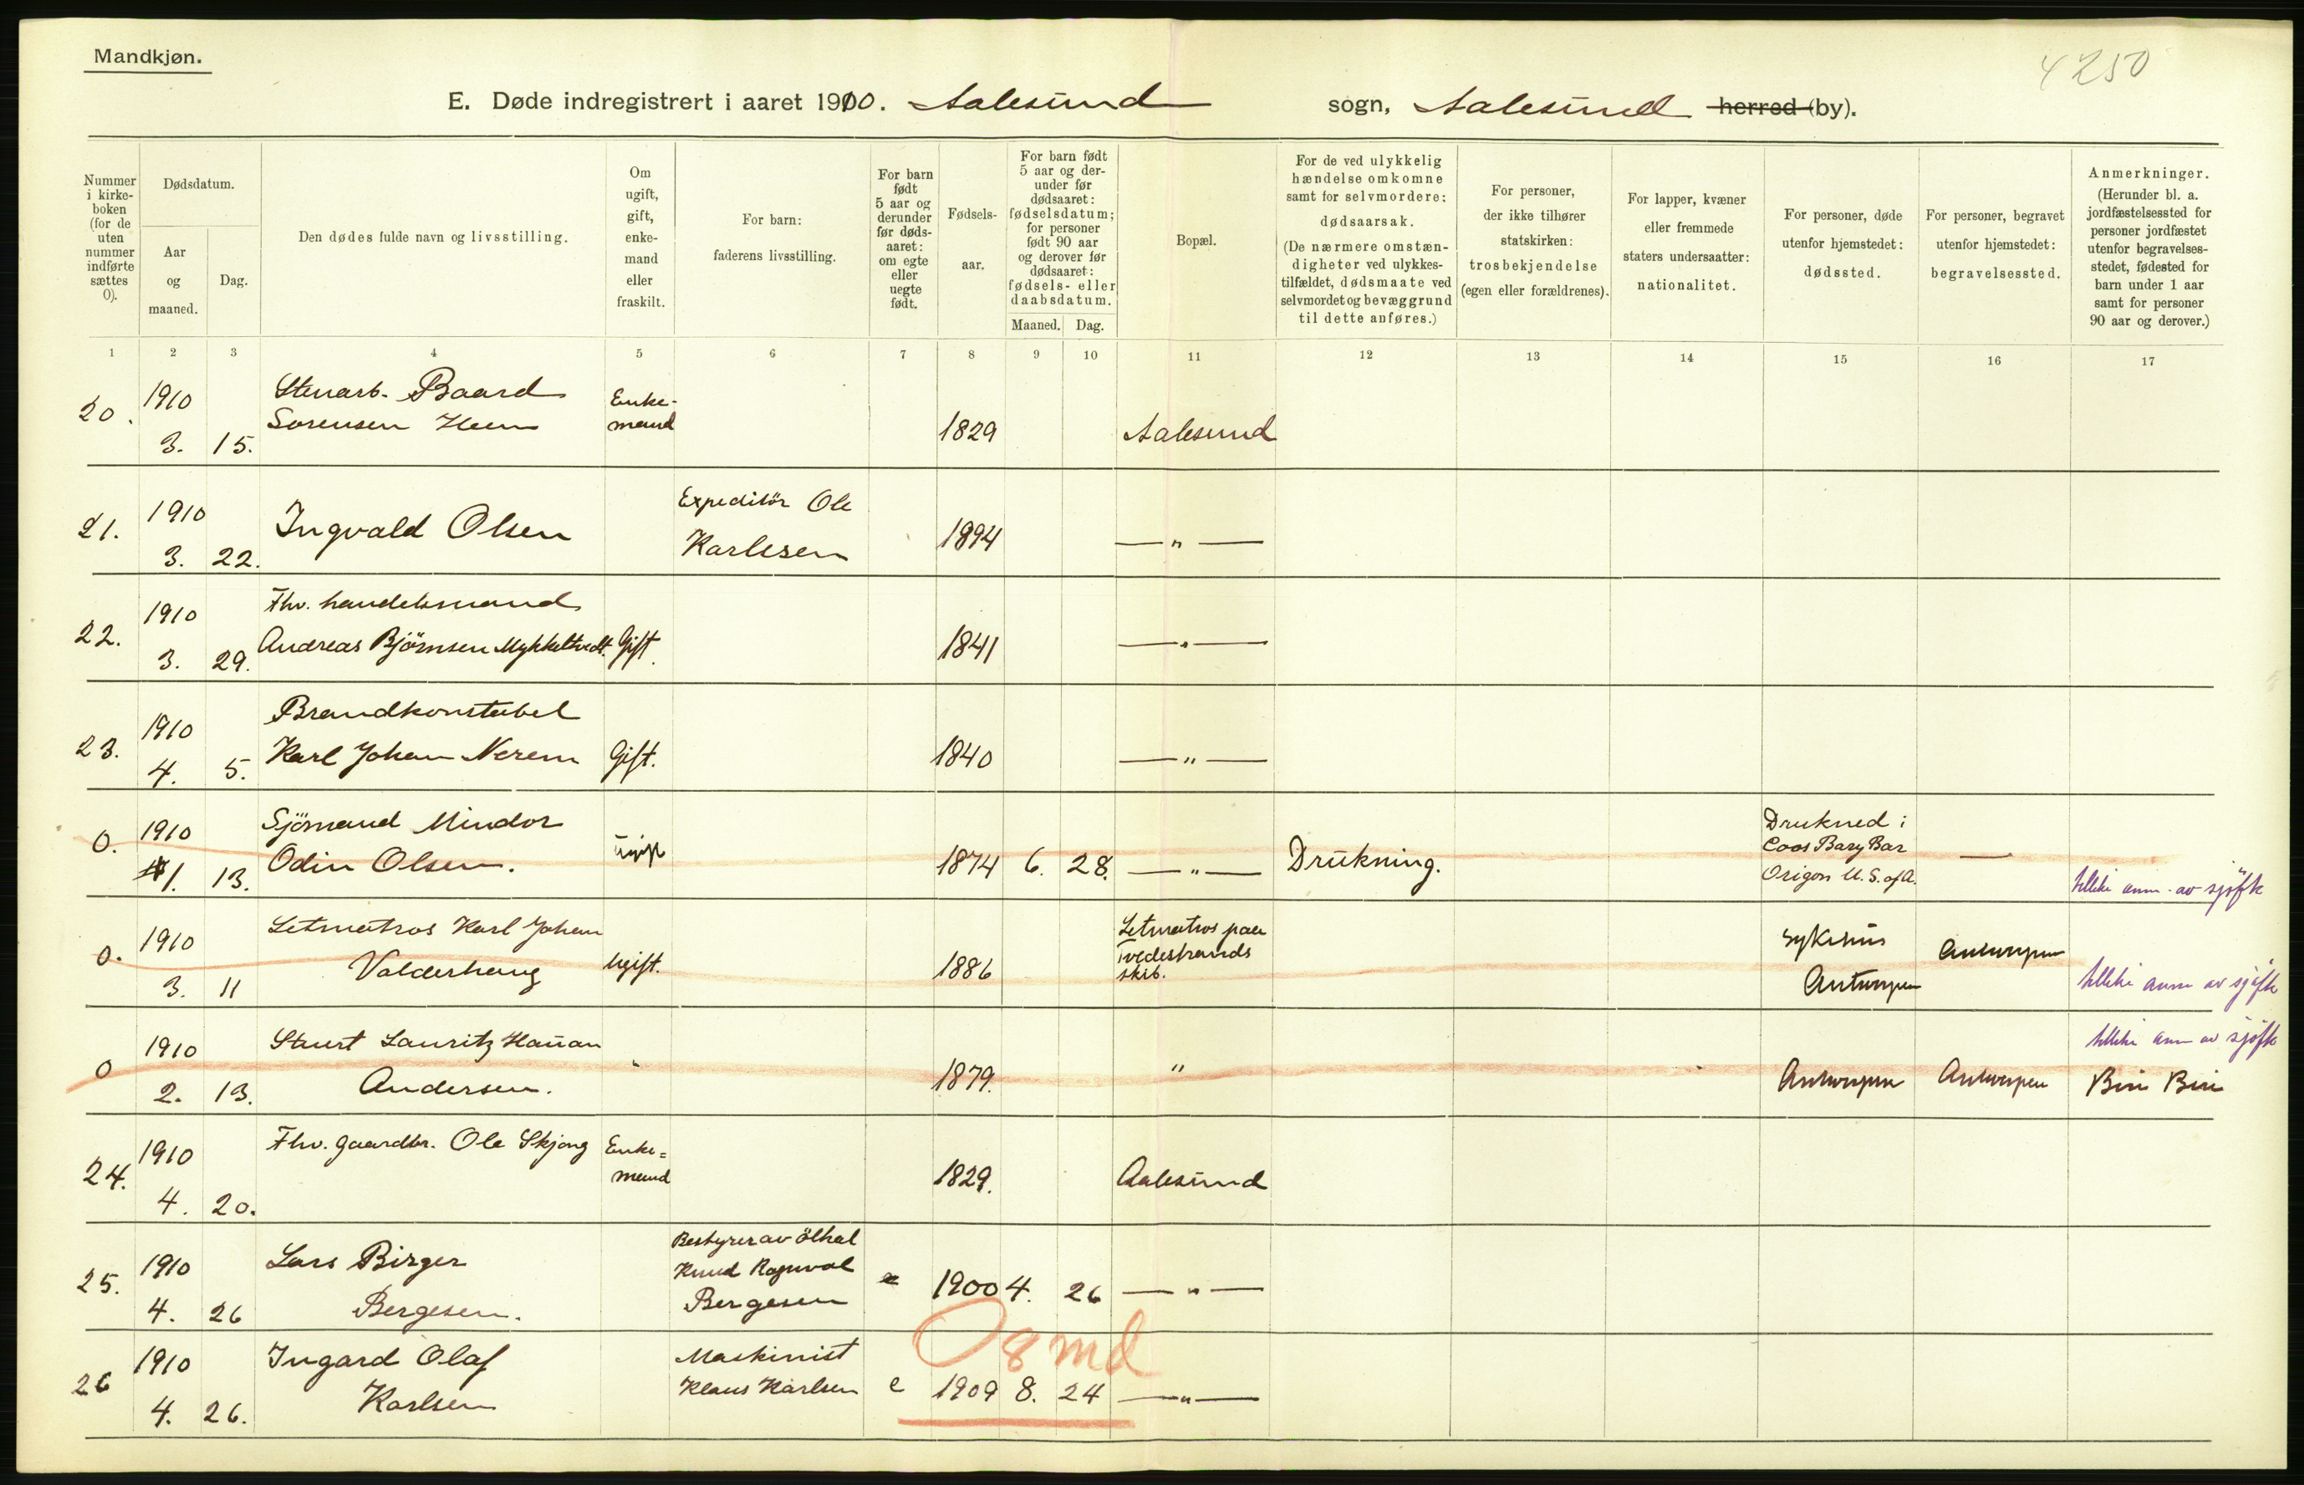 Mandkjøn.
4250
E. Døde indregistrert i aaret 1910. Aalesund sogn, Aalesund herred (by).
Nummer i kirke-boken (for de uten nummer indførte sættes 0).
Dødsdatum.
Aar og maaned.
Dag.
Den dødes fulde navn og livsstilling.
Om ugift, gift, enke-mand eller fraskilt.
For barn: faderens livsstilling.
For barn født 5 aar og derunder før døds-aaret: om egte eller uegte født.
Fødsels-aar.
For barn født 5 aar og der-under før dødsaaret: fødselsdatum; for personer født 90 aar og derover før dødsaaret: fødsels- eller daabsdatum.
Maaned. Dag.
Bopæl.
For de ved ulykkelig hændelse omkomne samt for selvmordere: dødsaarsak. (De nærmere omstæn-digheter ved ulykkes-tilfældet, dødsmaate ved selvmordet og bevæggrund til dette anføres.)
For personer, der ikke tilhører statskirken: trosbekjendelse (egen eller forældrenes).
For lapper, kvæner eller fremmede staters undersaatter: nationalitet.
For personer, døde utenfor hjemstedet: dødssted.
For personer, begravet utenfor hjemstedet: begravelsessted.
Anmerkninger. (Herunder bl. a. jordfæstelsessted for personer jordfæstet utenfor begravelses-stedet, fødested for barn under 1 aar samt for personer 90 aar og derover.)
1 2 3 4 5 6 7 8 9 10 11 12 13 14 15 16 17
20. 1910 3. 15. Stenarb. Baard Sorensen Heen Enke-mand 1829 Aalesund
21. 1910 3. 22. Ingvald Olsen Expeditör Ole Karlsen 1894 — " —
22. 1910 3. 29. Fhv. handelsmand Andreas Björnsen Mykkeltvedt. Gift. 1841 — " —
23. 1910 4. 5. Brandkonstabel Karl Johan Nerem Gift. 1840 — " —
0. 1910 1. 13. Sjömand Mindor Odin Olsen. Ugift 1874 6. 28. — " — Drukning. Drukned i Coos Bary Bar Origon U.S. of A. — tillike anm. av sjöfk
0. 1910 3. 11 Letmatros Karl Johan Valderhaug Ugift. 1886 Letmatros paa Tvedestrands skib. Sykehus Antwerpen Antwerpen tillike anm av sjöfk
0 1910 2. 13. Stuert Lauritz Hauan Andersen. " 1879. " Antwerpen Antwerpen tillike anm av sjöfk Biri Biri
24. 1910 4. 20. Fhv. gaardbr. Ole Skjong Enke=mand 1829. Aalesund
25. 1910 4. 26 Lars Birger Bergesen. Bestyrer av ölhal Knud Ragnval Bergesen e 1900 4. 26 — " —
0 8 md
26 1910 4. 26. Ingard Olaf Karlsen Maskinist Klaus Karlsen e 1909 8. 24 — " —